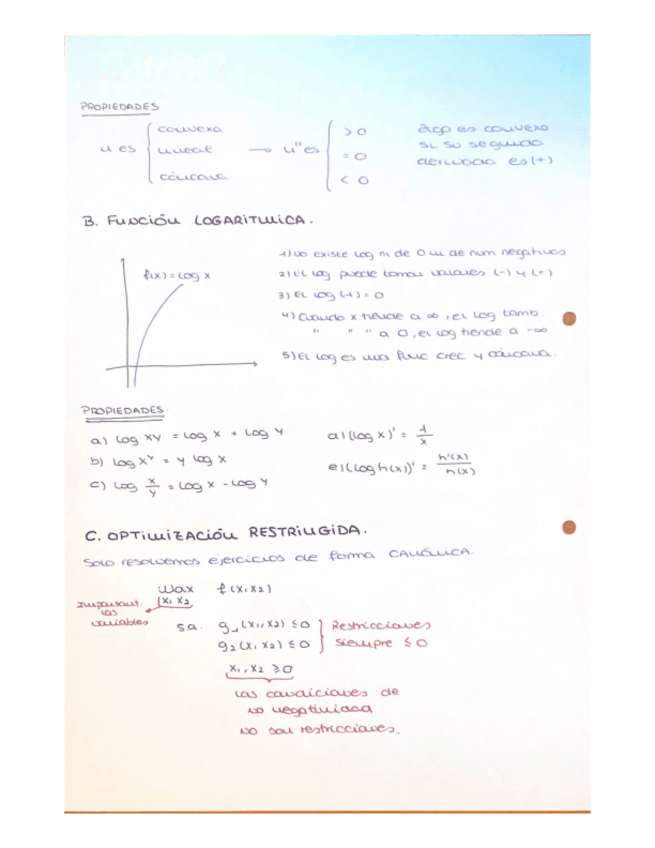 PROPIEDADES
u es { convexa → u'' es { > 0 algo es convexo
lineal = 0 si su segunda
cóncava < 0 derivada es (+)
B. FUNCIÓN LOGARITMICA.
f(x) = log x
1) No existe log ni de 0 ni de num negativos
2) El log puede tomar valores (-) y (+)
3) El log (1) = 0
4) Cuando x tiende a ∞, el log tamb.
" " " a 0, el log tiende a -∞
5) El log es una func crec y cóncava.
PROPIEDADES.
a) log xy = log x + log y
b) log x^y = y log x
c) log x/y = log x - log y
d) (log x)' = 1/x
e) (log h(x))' = h'(x)/h(x)
C. OPTIMIZACIÓN RESTRINGIDA.
Solo resolvemos ejercicios de forma CANÓNICA.
Max f(x₁ x₂)
x₁ x₂
Important.
las
variables
s.a. g₁(x₁, x₂) ≤ 0
g₂(x₁ x₂) ≤ 0
Restricciones
siempre ≤ 0
x₁, x₂ ≥ 0
las condiciones de
no negatividad
no son restricciones.